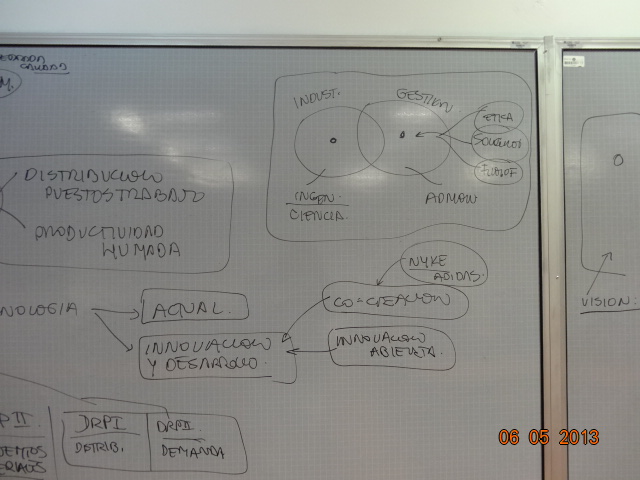 INDUST.
GESTION
ETICA
SOCIEDAD
FILOSOF
INGEN.
CIENCIA.
ADMON
DISTRIBUCION
PUESTOS TRABAJO
PRODUCTIVIDAD
HUMANA
NYKE
ADIDAS.
CO-CREACION
NOLOGIA
ACTUAL.
INNOVACION
Y DESARROLLO.
INNOVACION
ABIERTA.
VISION:
P II.
DRPI
DISTRIB.
DRPII.
DEMANDA
06 05 2013